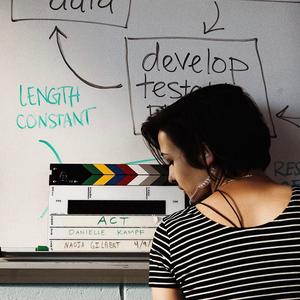 data
develop
LENGTH
CONSTANT
ACT
DANIELLE KAMPF
NADJA GILBERT 4/9/